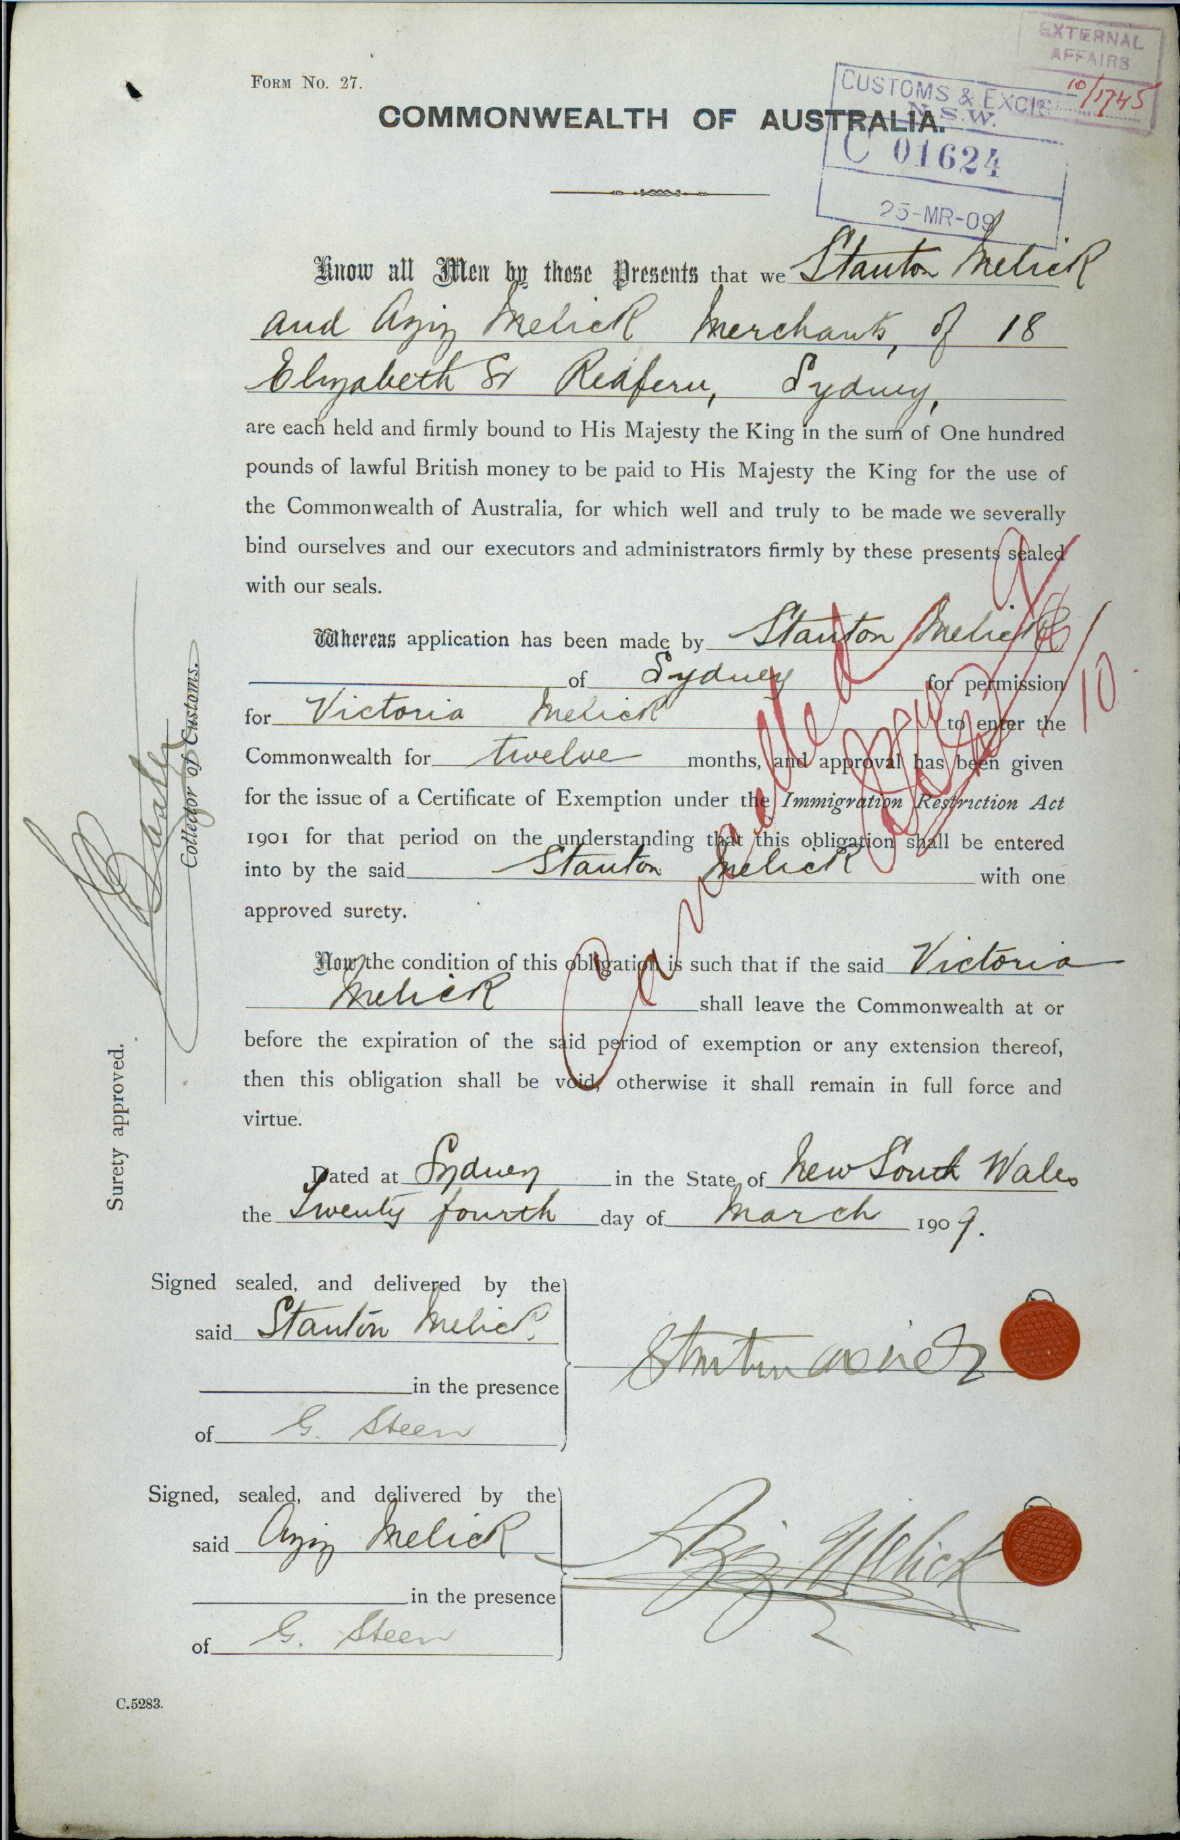 EXTERNAL
AFFAIRS
10/1745
FORM NO. 27.
CUSTOMS & EXCIS
N.S.W.
C 01624
25-MR-09
COMMONWEALTH OF AUSTRALIA.
Know all Men by these Presents that we Stanton Melick
and Aziz Melick Merchants, of 18
Elizabeth St Redfern, Sydney,
are each held and firmly bound to His Majesty the King in the sum of One hundred
pounds of lawful British money to be paid to His Majesty the King for the use of
the Commonwealth of Australia, for which well and truly to be made we severally
bind ourselves and our executors and administrators firmly by these presents sealed
with our seals.
Whereas application has been made by Stanton Melick
of Sydney for permission
for Victoria Melick to enter the
Commonwealth for twelve months, and approval has been given
for the issue of a Certificate of Exemption under the Immigration Restriction Act
1901 for that period on the understanding that this obligation shall be entered
into by the said Stanton Melick with one
approved surety.
Now the condition of this obligation is such that if the said Victoria
Melick shall leave the Commonwealth at or
before the expiration of the said period of exemption or any extension thereof,
then this obligation shall be void, otherwise it shall remain in full force and
virtue.
Cancelled
10
Surety approved.
Collector of Customs.
Dated at Sydney in the State of New South Wales
the Twenty fourth day of March 1909.
Signed sealed, and delivered by the
said Stanton Melick.
in the presence
of G. Steen
Stanton Melick
Signed, sealed, and delivered by the
said Aziz Melick
in the presence
of G. Steen
Aziz Melick
C.5283.